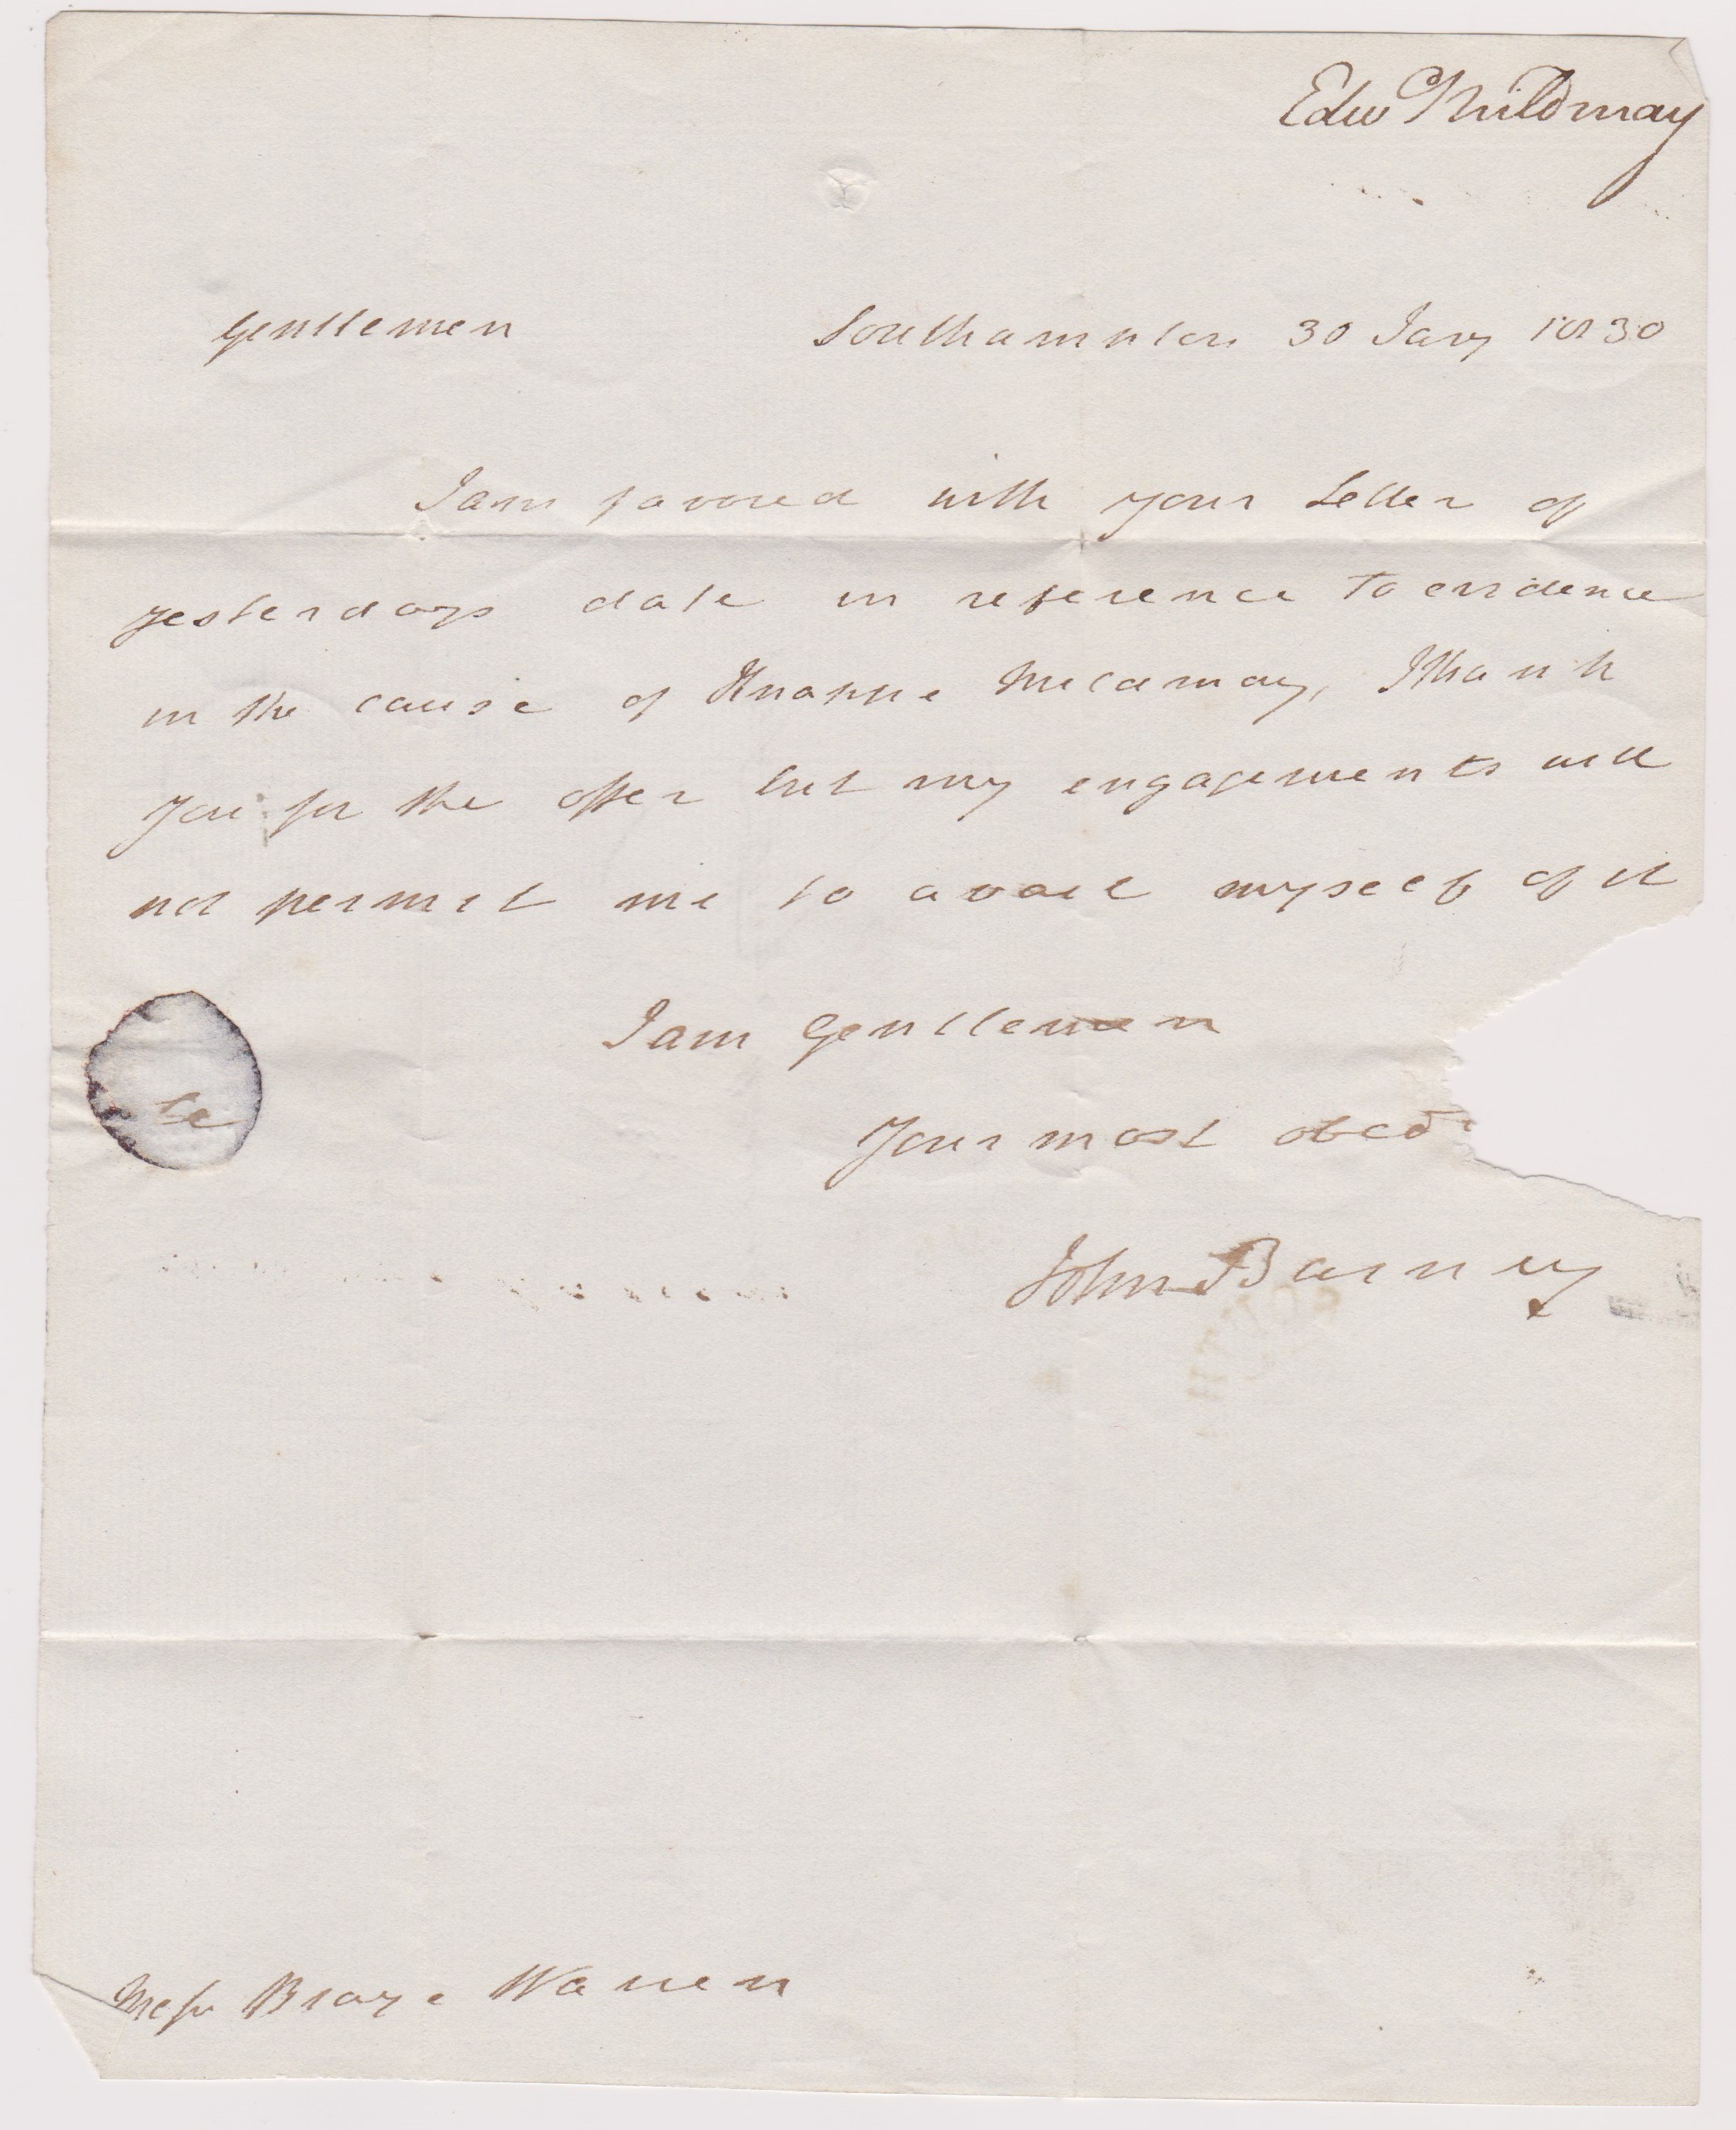 Edw Mildmay
Gentlemen Southampton 30 Jany 1830
I am favored with your Letter of
yesterdays date in reference to evidence
in the cause of Knapp e Mildmay, I thank
you for the offer but my engagements will
not permit me to avail myself of it
I am Gentlemen
Your most obedt
John Barney
Messrs Bray e Warren